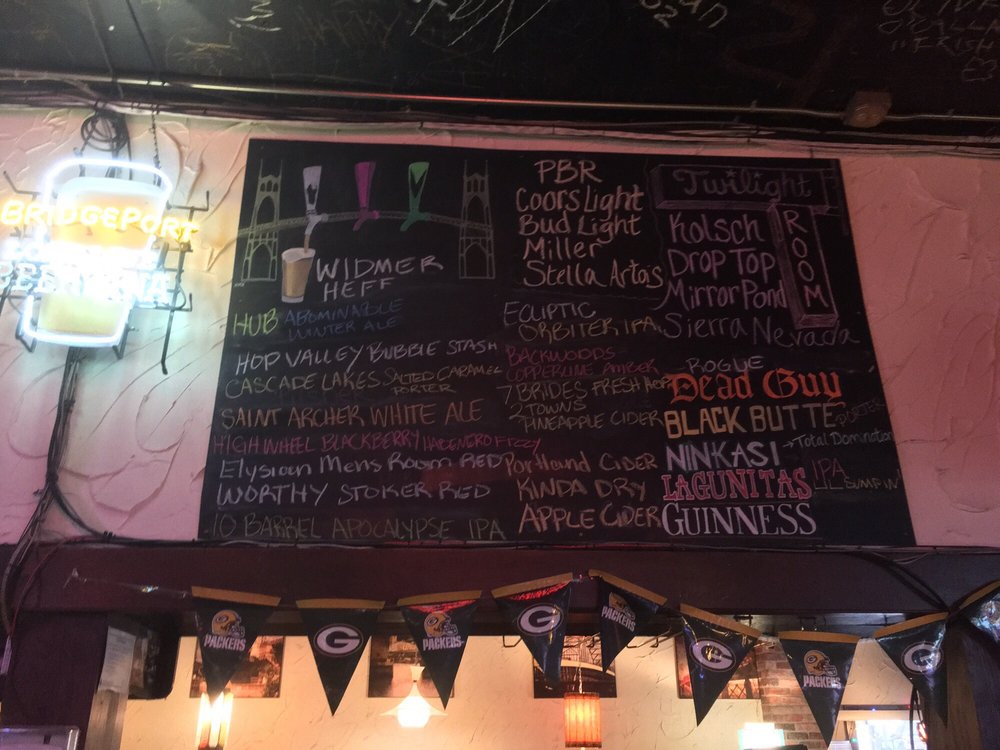 BRIDGEPORT
WIDMER
HEFF
HUB ABOMINABLE
WINTER ALE
HOP VALLEY BUBBLE STASH
CASCADE LAKES SALTED CARAMEL
PORTER
SAINT ARCHER WHITE ALE
HIGH WHEEL BLACKBERRY HACENDRO FIZZY
Elysian Mens Room RED
WORTHY STOKER RED
10 BARREL APOCALYPSE IPA
PBR
Coors Light
Bud Light
Miller
Stella Artois
ECLIPTIC
ORBITER IPA
BACKWOODS
COPPERLINE AMBER
7 BRIDES FRESH HOP
2 TOWNS
PINEAPPLE CIDER
Portland CIDER
KINDA DRY
APPLE CIDER
Twilight
ROOM
Kolsch
DROP TOP
Mirror Pond
Sierra Nevada
ROGUE
Dead Guy
BLACK BUTTE PORTER
NINKASI → Total Domination
IPA
LAGUNITAS SUMPIN
GUINNESS
PACKERS
G
PACKERS
G
PACKERS
G
PACKERS
G